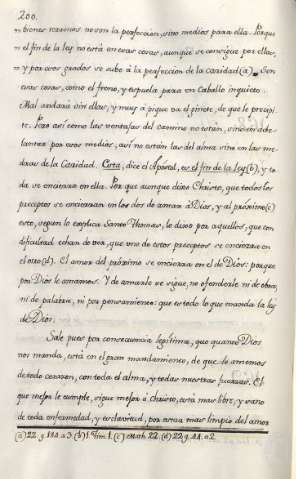 200.
ciones mismas no son la perfeccion, sino medios para ella. Porque
el fin de la ley no está en esas cosas, aunque se consigue por ellas,
y por esos grados se sube à la perfeccion de la caridad (a). Son
esas cosas, como el freno, y espuela para un Caballo inquieto.
Mal andará sin ellas, y muy à pique va el ginete, de que le precipi-
te. Pero asi como las ventajas del camino no están, sino en ade-
lantar por esos medios, asi no están las del alma sino en las me-
dras de la Caridad. Esta, dice el Apostol, es el fin de la ley (b), y to-
da se encierra en ella. Por que aunque dixo Christo, que todos los
preceptos se encierran en los dos de amar à Dios, y al próximo (c)
esto, segun lo explica Santo Thomas, lo dixo por aquellos, que con
dificultad echan de ver, que uno de estos preceptos se encierra en
el otro (d). El amor del próximo se encierra en el de Dios: porque
por Dios le amamos. Y de amarle se sigue, no ofenderle ni de obra,
ni de palabra, ni por pensamiento: que es todo lo que manda la ley
de Dios.
Sale pues por consecuencia legitima, que quanto Dios
nos manda, está en el gran mandamiento, de que le amemos
de todo corazon, con toda el alma, y todas nuestras fuerzas. El
que mejor le cumple, sigue mejor à Christo, está mas libre, y sano
de toda enfermedad, y esclavitud, por estar mas limpio del amor
(a) 22. q. 44. a. 3. (b) 1. Tim. 1. (c) Math. 22. (d) 22. q. 44. a. 2.